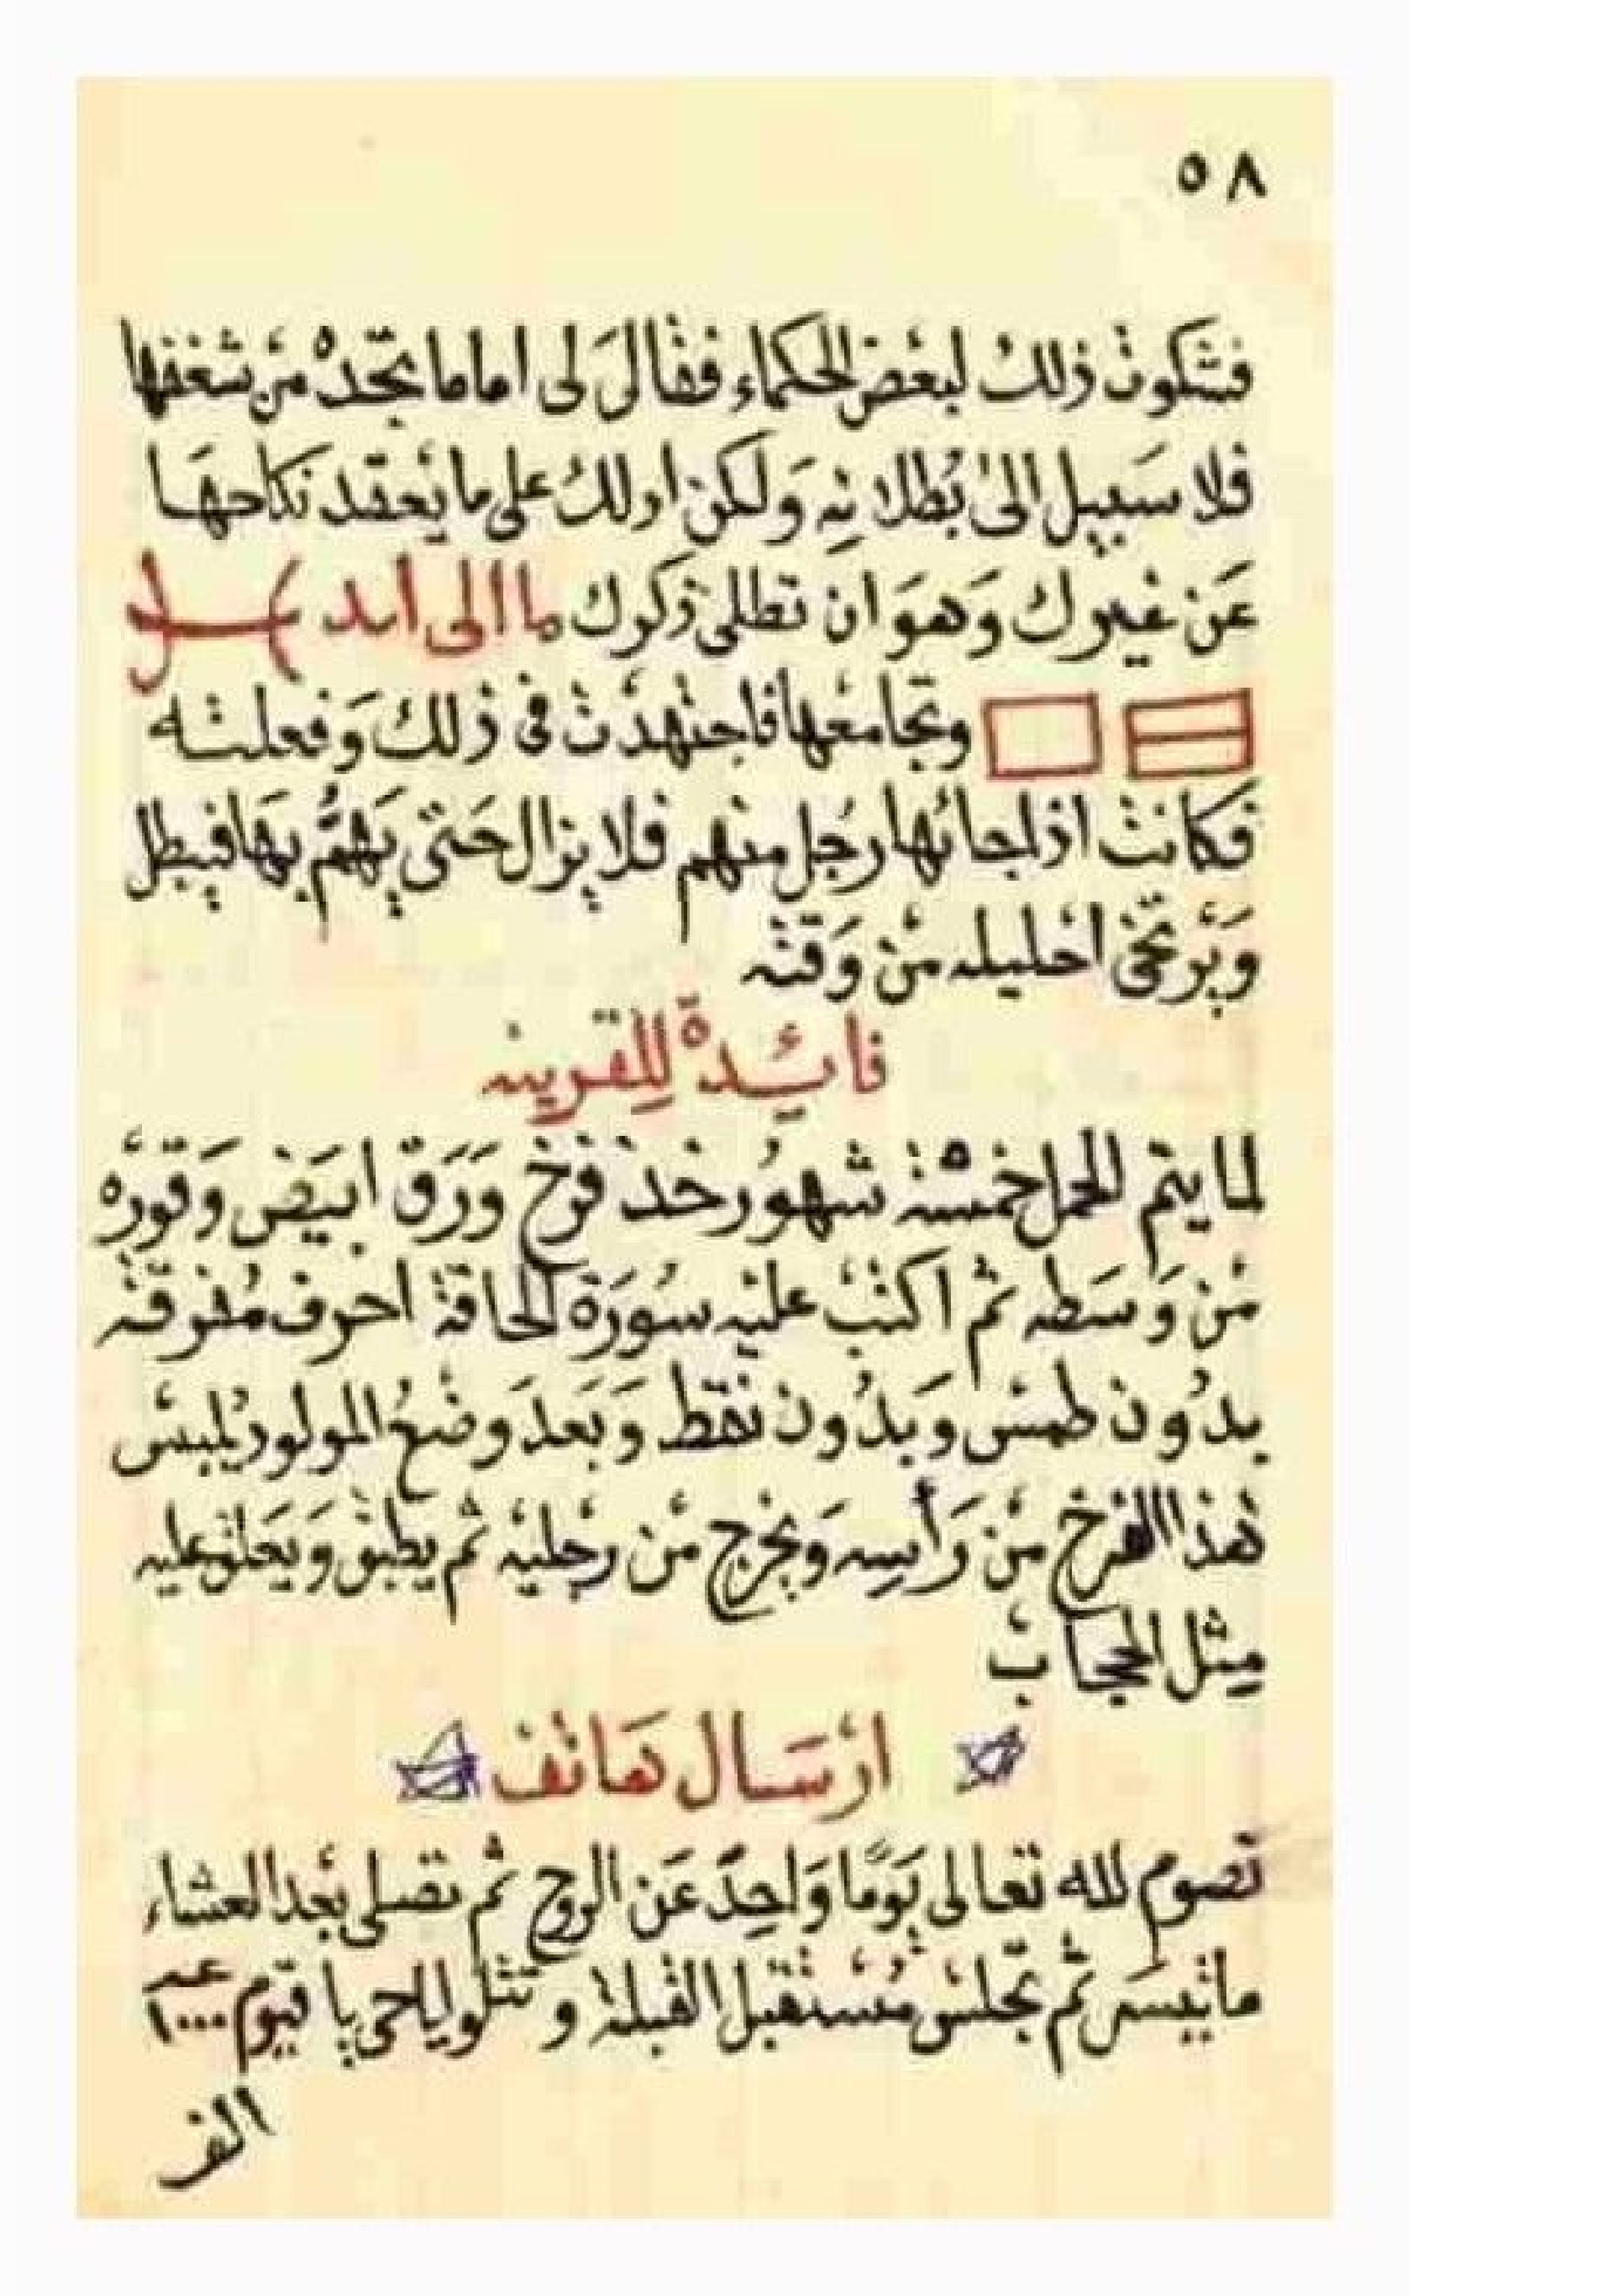 ٥٨
فشكوت ذلك لبعض الحكماء فقال لى اما ما تجده من شغفها
فلا سبيل الى بطلانه ولكن ادلك على ما يعقد نكاحها
عن غيرك وهو ان تطلى ذكرك
وتجامعها فاجتهدت فى ذلك وفعلته
فكانت اذا جائها رجل منهم فلا يزال حتى يهم بها فيبطل
ويرتخى احليله من وقته
فائدة للقرينه
لما يتم للحمل خمسة شهور خذ فرخ ورق ابيض وقوره
من وسطه ثم اكتب عليه سورة الحاقة احرف مفرقه
بدون طمس وبدون نقط وبعد وضع المولود يلبس
هذا الفرخ من رأسه ويخرج من رجليه ثم يطبق ويعلق عليه
مثل الحجاب
ارسال هاتف
تصوم لله تعالى يوما واحد عن الروح ثم تصلى بعد العشاء
ما تيسر ثم تجلس مستقبل القبلة و تتلو ياحى يا قيوم ١٠٠٠
الف